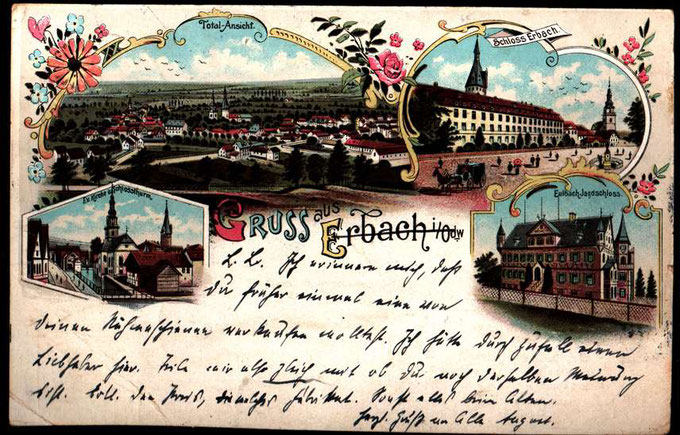 Total-Ansicht.
Schloss Erbach.
Ev. Kirche u. Schlossthurm.
Eulbach-Jagdschloss.
Gruss aus
Erbach i/Odw
L. L. Ich erinnere mich, daß
du früher einmal eine von
deinen Nähmaschinen verkaufen wolltest. Ich hätte durch Zufall einen
Liebhaber hier. Teile mir also gleich mit ob du noch derselben Meinung
bist. Evtl. den Preis, &
welches Fabrikat. Sonst alles beim Alten.
Herzl. Gruß an Alle August.